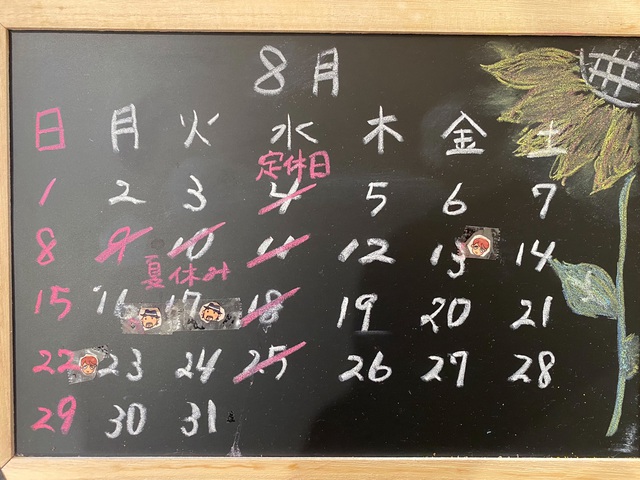 8月
日 月 火 水 木 金 土
定休日
1 2 3 4 5 6 7
8 9 10 11 12 13 14
夏休み
15 16 17 18 19 20 21
22 23 24 25 26 27 28
29 30 31